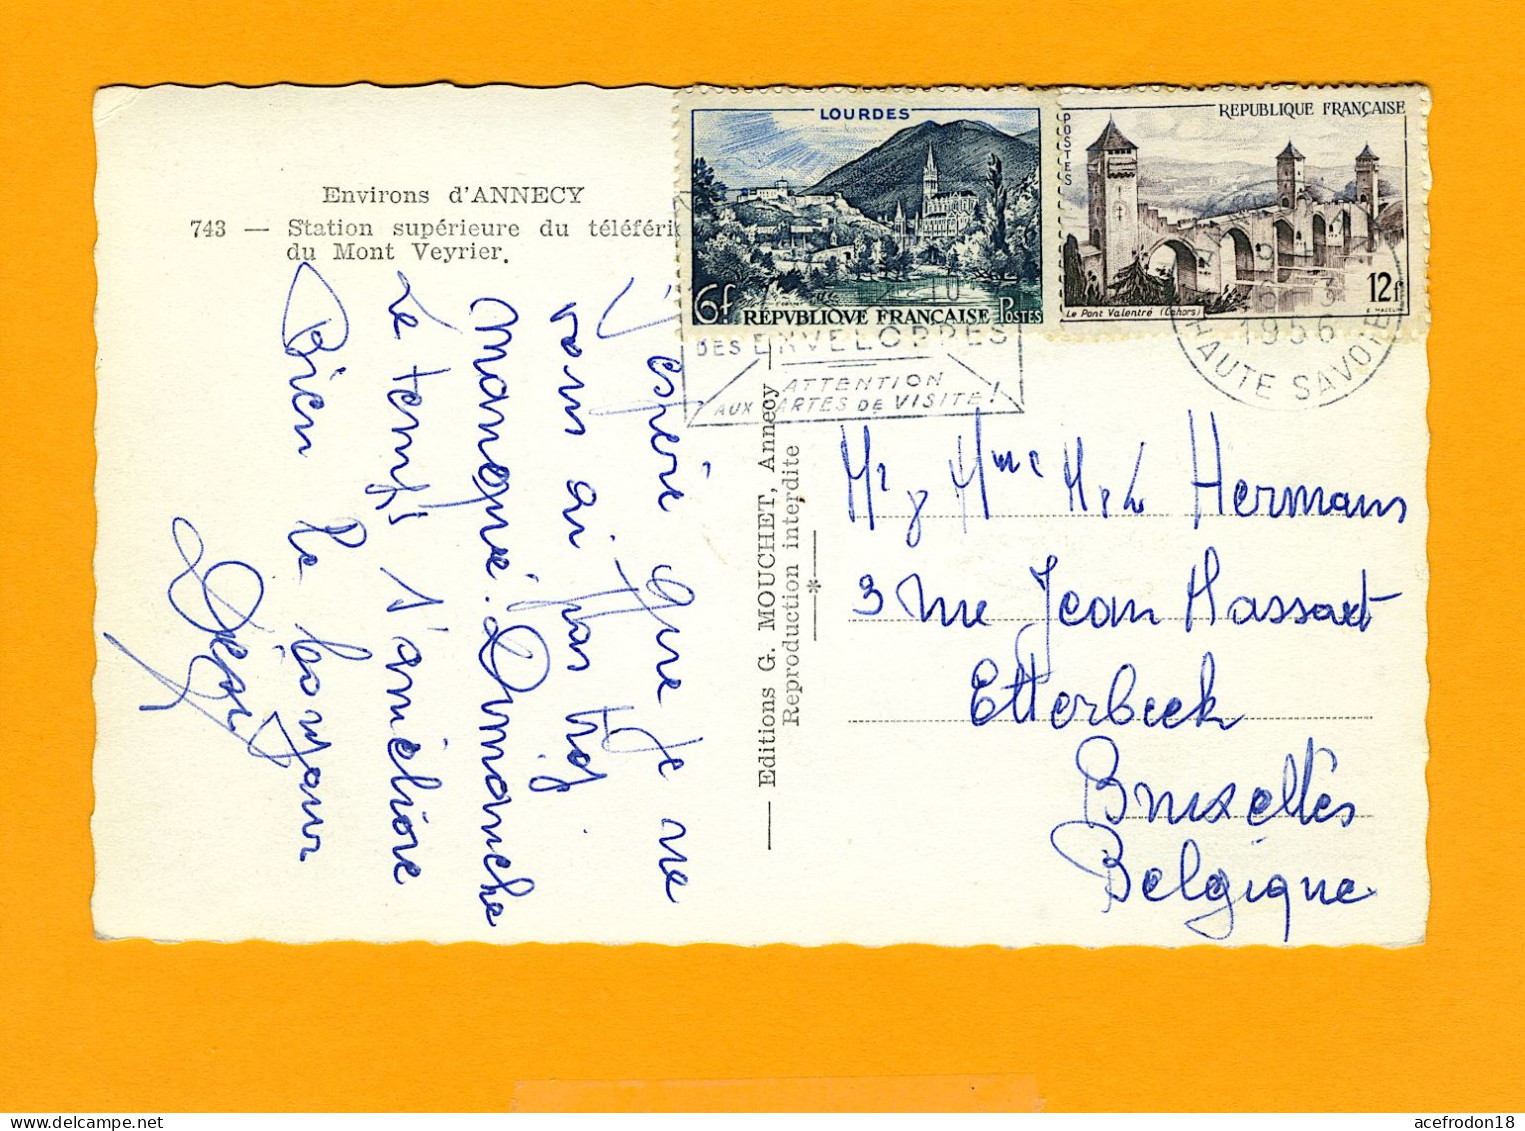 Environs d'ANNECY
743 — Station supérieure du téléféri
du Mont Veyrier.
J'espère que je ne
vous ai pas trop
manqué. Dimanche
Le temps s'améliore
Bien le bonjour
— Editions G. MOUCHET, Annecy —
Reproduction interdite
LOURDES
6f RÉPVBLIQVE FRANÇAISE POSTES
REPUBLIQUE FRANÇAISE
POSTES
12f
Le Pont Valentré (Cahors)
DES ENVELOPPES
ATTENTION
AUX CARTES DE VISITE!
1956
HAUTE SAVOIE
Mr & Mme Hermans
3 rue Jean Massart
Etterbeek
Bruxelles
Belgique
acefrodon18